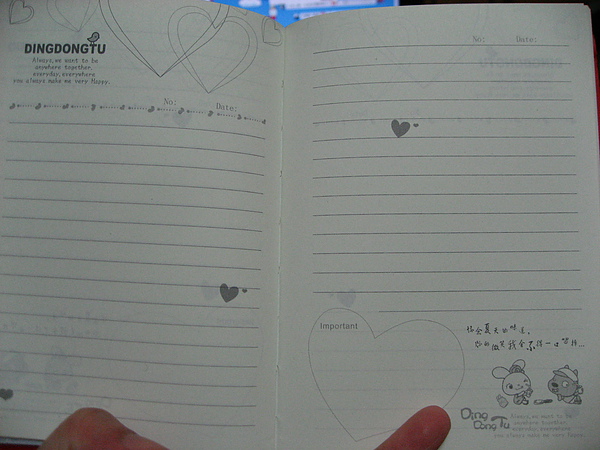 DINGDONGTU
Always, we want to be
anywhere together.
everyday, everywhere
you always make me very Happy.
No: Date:
No: Date:
Important
Ding
Dong Tu
Always, we want to be
anywhere together.
everyday, everywhere
you always make me very Happy.